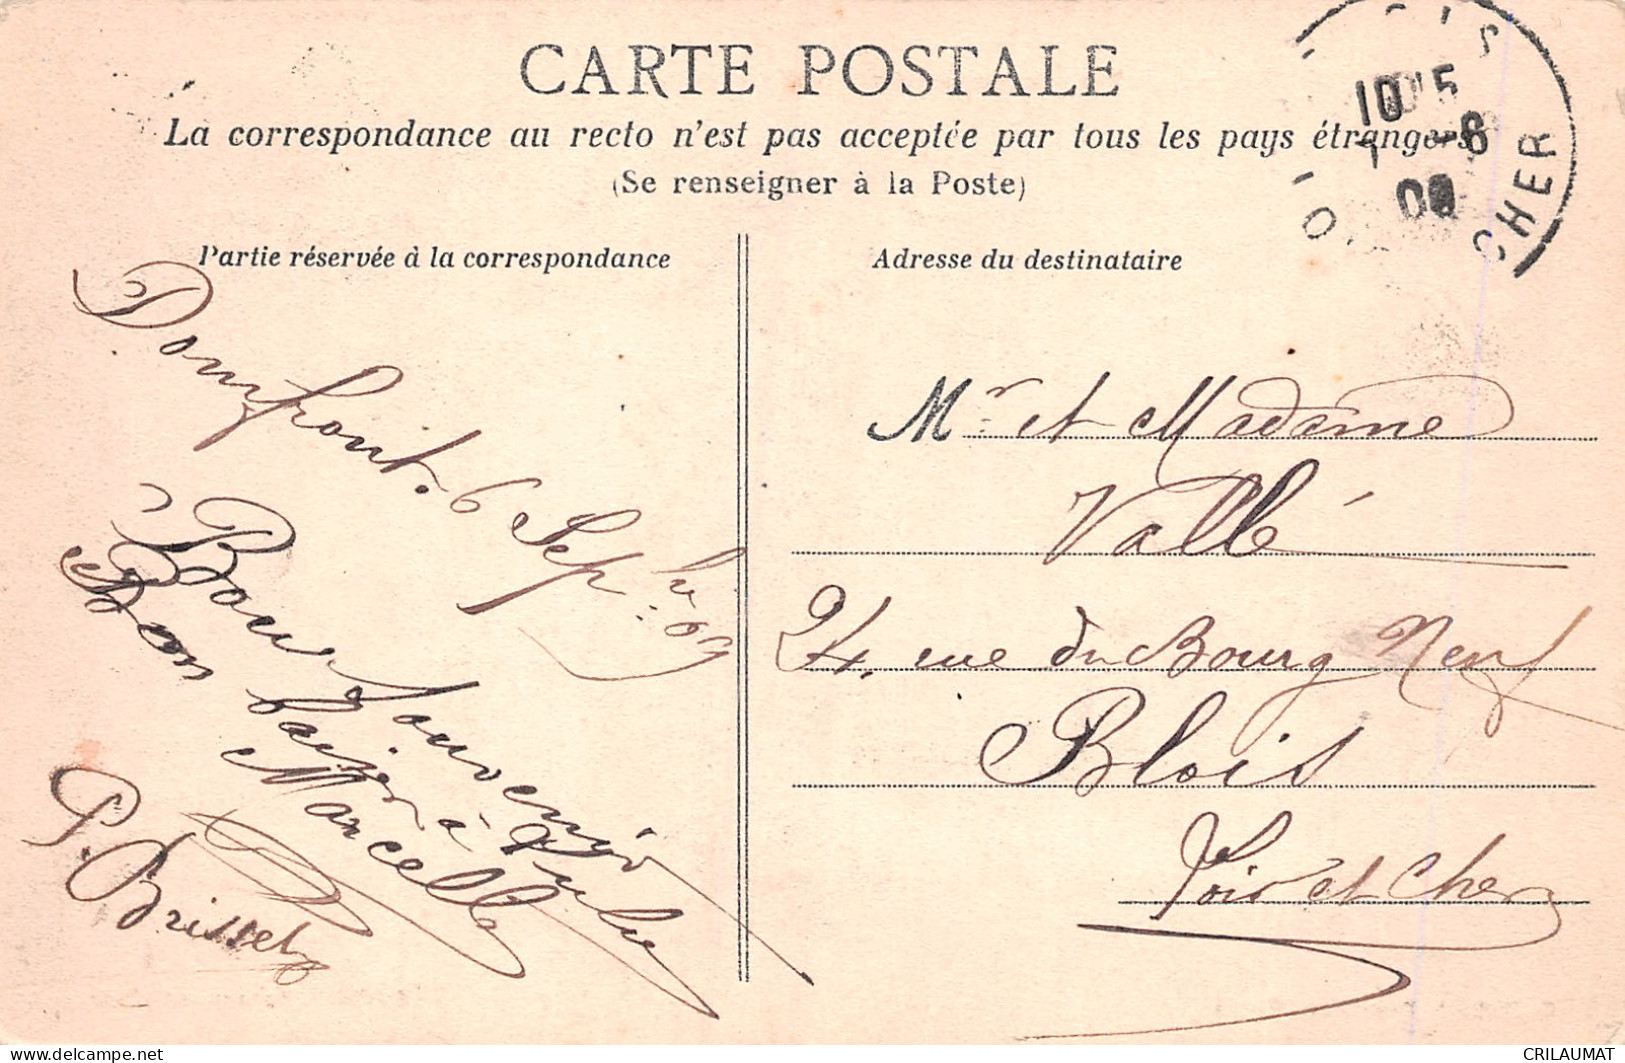 CARTE POSTALE
La correspondance au recto n'est pas acceptée par tous les pays étrangers
(Se renseigner à la Poste)
Partie réservée à la correspondance
Domfront. 6 Sepbre
Bon Souvenir
Bon baiser à
Marcelle
P. Brisset
Adresse du destinataire
Mr. et Madame
Vallé
24, rue du Bourg Neuf
Blois
Loir et Cher
10 15
CHER
CRILAUMAT